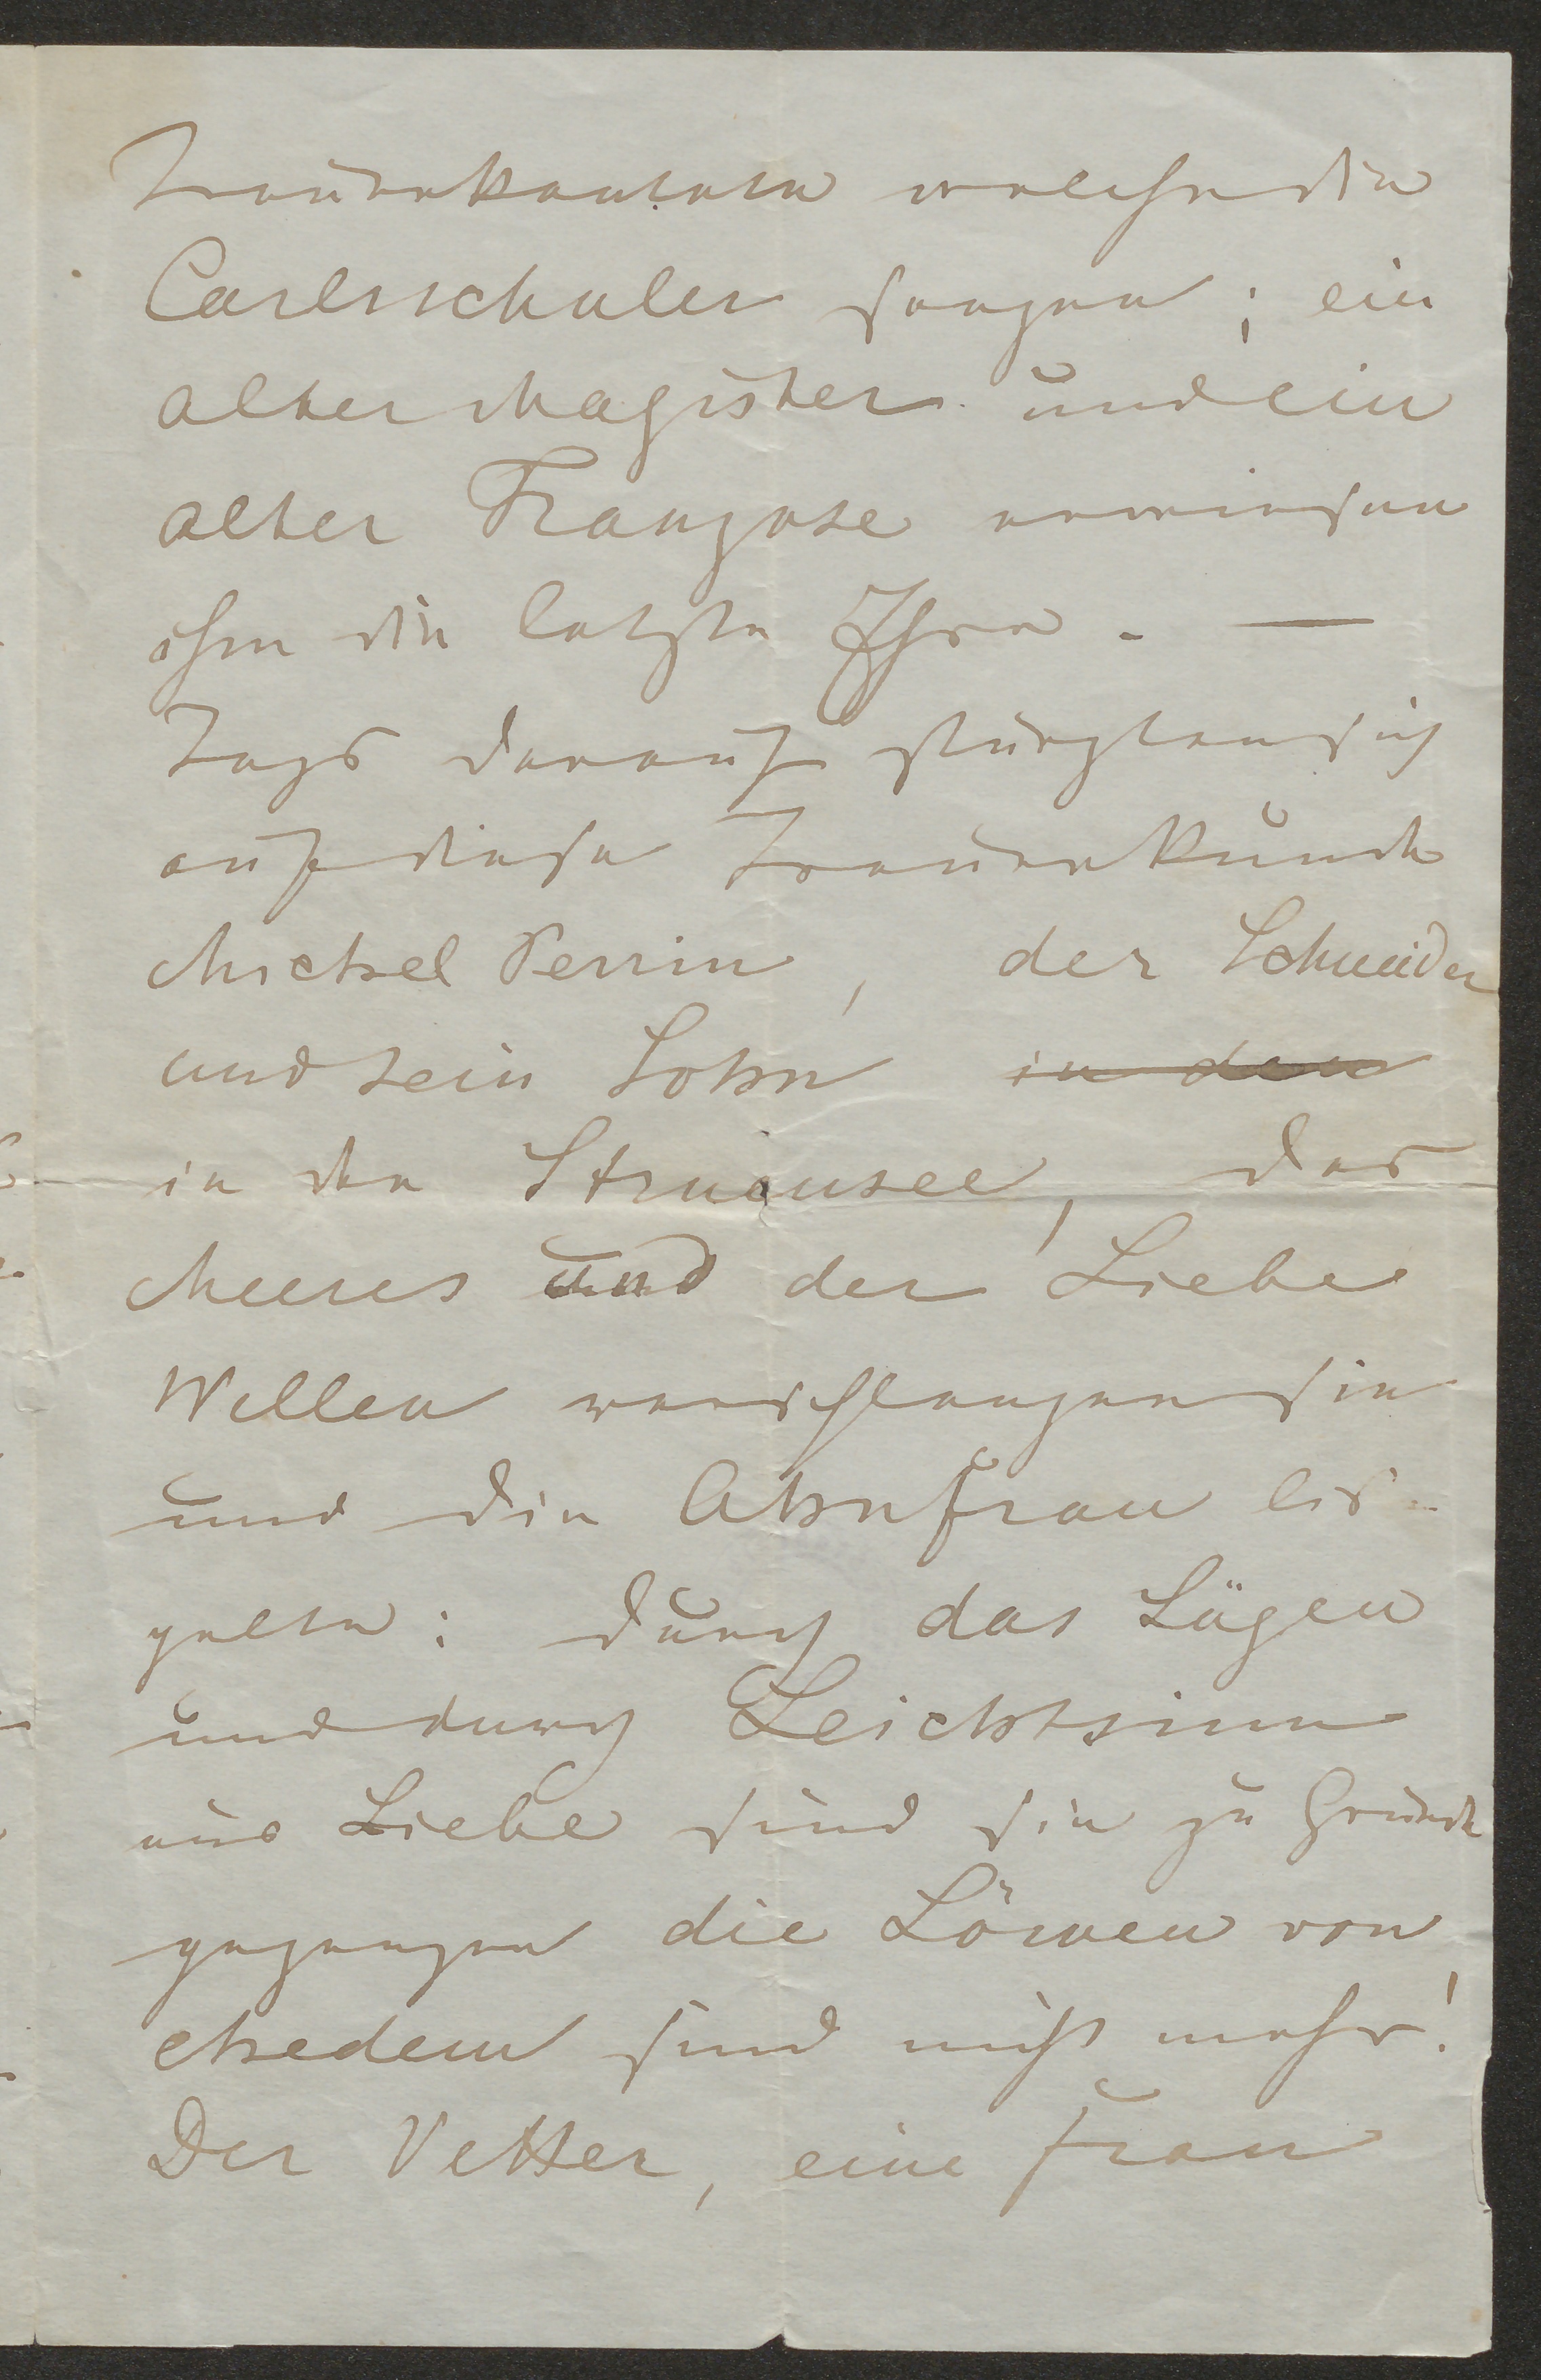 Trauerkantate welche die
Carlsschuler sangen; ein
alter Magister und ein
alter Franzose erwiesen
ihm die letzte Ehre. —
Tags darauf stürzten sich
auf diese Trauerkunde
Michel Perrin, der Schneider
und sein Sohn in den
in den Struensee, des
Meeres und der Liebe
Wellen verschlangen sie
und die Ahnfrau lis-
pelte: durch das Lügen
und durch Leichtsinn
aus Liebe sind sie zu Grunde
gegangen die Löwen von
ehedem sind nicht mehr!
Der Vetter, eine Frau